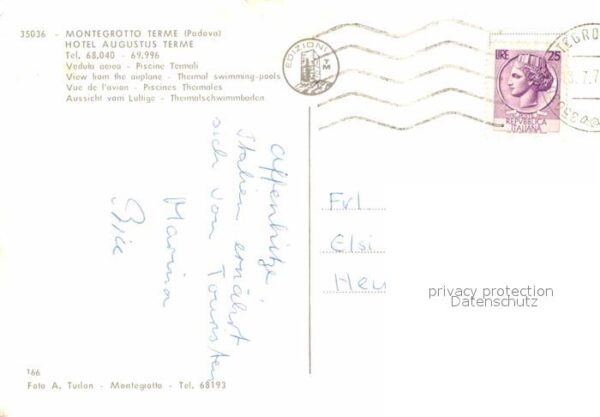 35036 - MONTEGROTTO TERME (Padova)
HOTEL AUGUSTUS TERME
Tel. 68.040 - 69.996
Veduta aerea - Piscine Termali
View from the airplane - Thermal swimming-pools
Vue de l'avion - Piscines Thermales
Aussicht vom Luftige - Thermalschwimmbaden
EDIZIONI
TM
LIRE 25
REPUBBLICA
ITALIANA
Affenhitze,
Italien ernährt
sich von Touristen
Marina
Frl
Elsi
Heu
privacy protection
Datenschutz
166
Foto A. Turlon - Montegrotto - Tel. 68193